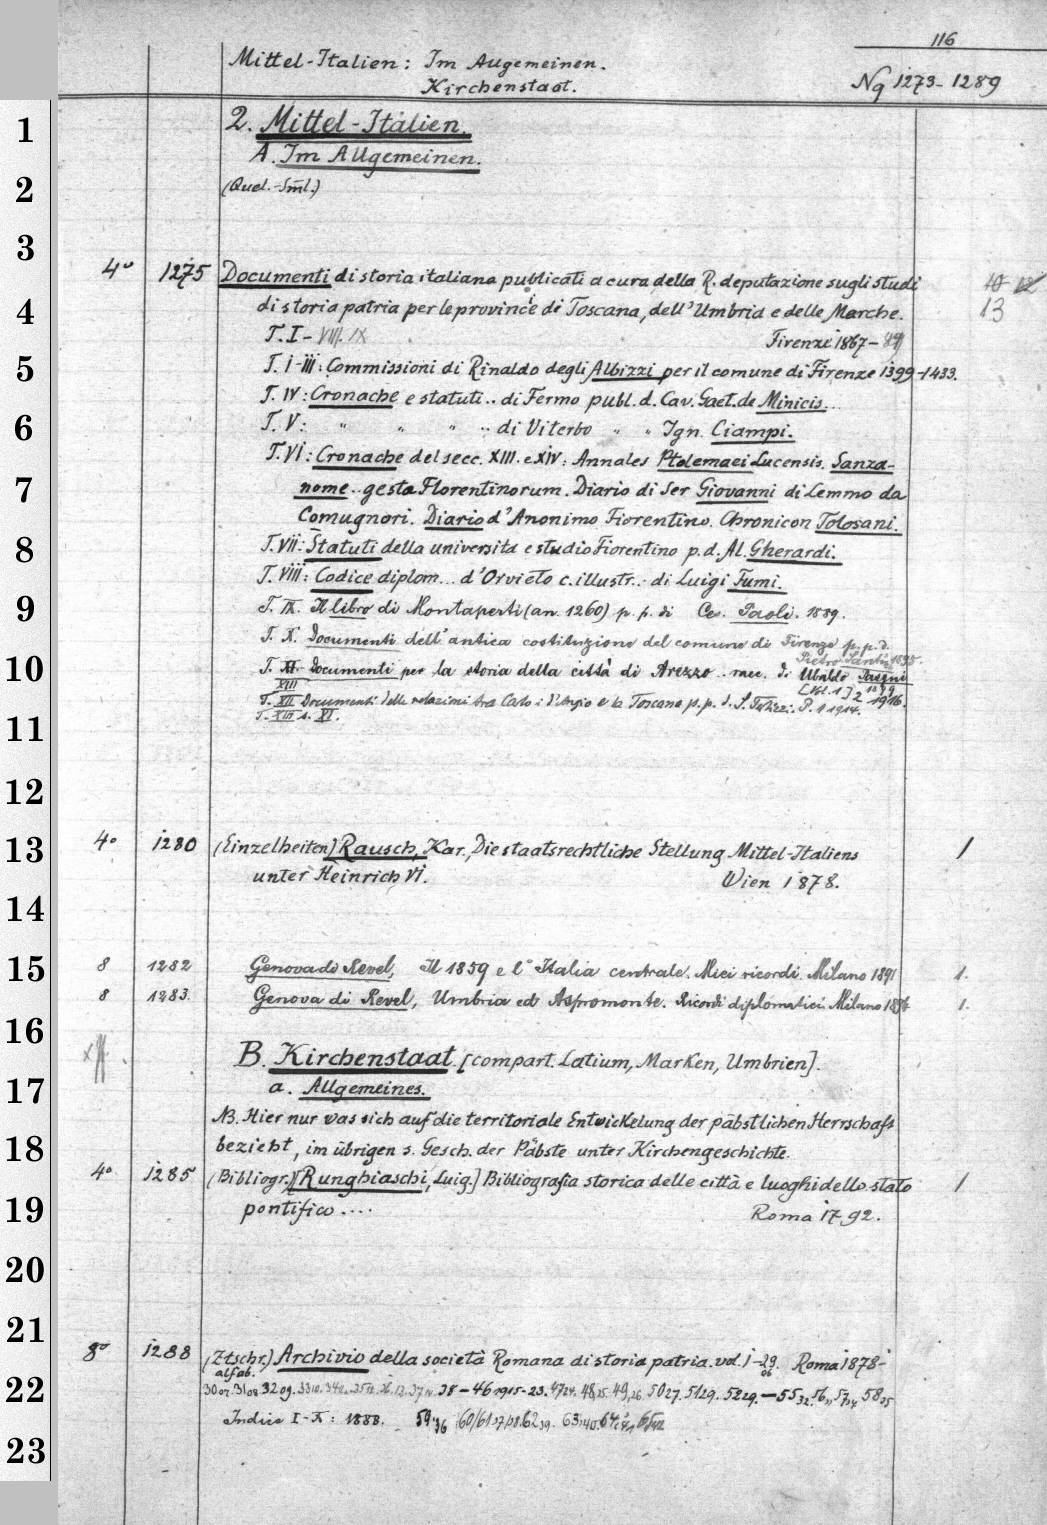 116
Mittel-Italien: Im Allgemeinen.
Kirchenstaat.
Nq 1273-1289
1
2. Mittel-Italien.
A. Im Allgemeinen.
2
(Quel.-Sml.)
3
4° 1275 Documenti di storia italiana publicati a cura della R. deputazione sugli studi 10 12
4
di storia patria per le provincie di Toscana, dell'Umbria e delle Marche. 13
T. I- VIII. IX Firenze 1867-89
5
T. I-III: Commissioni di Rinaldo degli Albizzi per il comune di Firenze 1399-1433.
T. IV: Cronache e statuti .. di Fermo publ. d. Cav. Gaet. de Minicis...
6
T. V: " " " .. di Viterbo " " Ign. Ciampi.
T. VI: Cronache del secc. XIII. e XIV: Annales Ptolemaei Lucensis. Sanza-
7
nome .. gesta Florentinorum. Diario di Ser Giovanni di Lemmo da
Comugnori. Diario d'Anonimo Fiorentino. Chronicon Tolosani.
8
T. VII: Statuti della università e studio Fiorentino p. d. Al. Gherardi.
T. VIII: Codice diplom... d'Orvieto c. illustr... di Luigi Fumi.
9
T. IX. Il libro di Montaperti (an. 1260) p. p. di Ce. Paoli. 1889.
T. X. Documenti dell'antica costituzione del comune di Firenze p. p. d.
Pietro Santini 1895.
10
T. XI. Documenti per la storia della città di Arezzo .. racc. di Ubaldo Pasqui
XIII [Vol. 1] 1899 2 1916.
T. XII Documenti delle relazioni tra Carlo I d'Angio e la Toscana p. p. d. S. Terlizzi. P. 1 1914.
T. XIII s. XI.
11
12
13
4° 1280 (Einzelheiten) Rausch, Kar., Die staatsrechtliche Stellung Mittel-Italiens 1
unter Heinrich VI. Wien 1878.
14
15
8 1282 Genova di Revel, Il 1859 e l'Italia centrale. Miei ricordi. Milano 1891 1.
8 1283. Genova di Revel, Umbria ed Aspromonte. Ricordi diplomatici. Milano 1894 1.
16
B. Kirchenstaat. [compart. Latium, Marken, Umbrien].
17
a. Allgemeines.
NB. Hier nur was sich auf die territoriale Entwickelung der päbstlichen Herrschaft
18
bezieht, im übrigen s. Gesch. der Päbste unter Kirchengeschichte.
4° 1285 (Bibliogr.) [Runghiaschi, Luig.] Bibliografia storica delle città e luoghi dello stato 1
19
pontifico .... Roma 1792.
20
21
8° 1288 (Ztschr.) Archivio della società Romana di storia patria. vol. 1-29. Roma 1878-
06
alfab.
22
30 07. 31 08. 32 09. 33 10. 34 11. 35 12. 36. 13. 37 14 38-46 1915-23. 47 24. 48, 25. 49, 26. 50 27. 51 29. 52 29.-55 32. 56, 57 58 35
Indice I-X: 1888. 59 36 60/61 37/38. 62 39. 63 40.
23